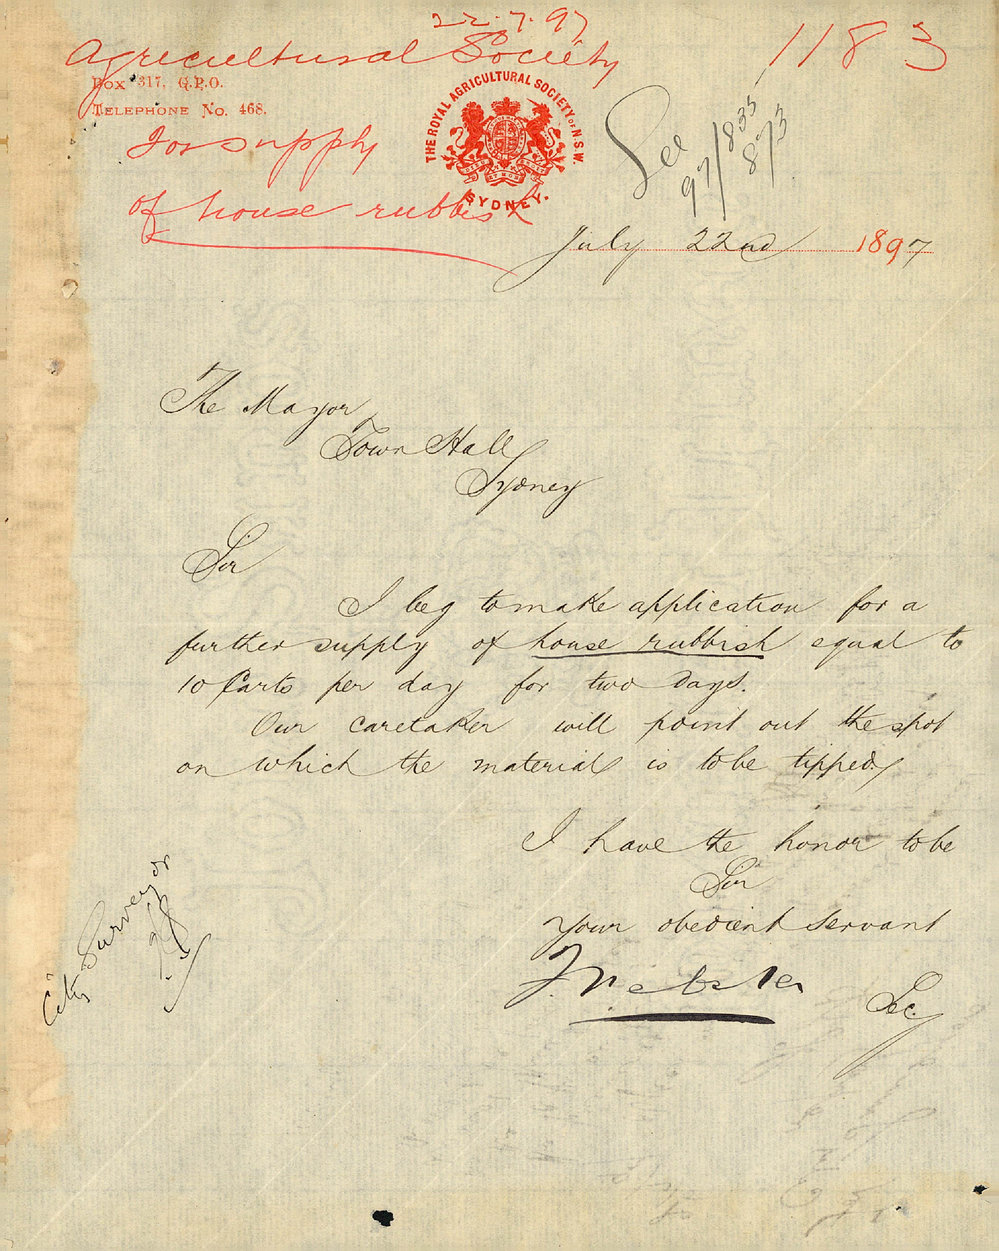 22.7.97
Agricultural Society 1183
Box 317, G.P.O.
Telephone No. 468.
THE ROYAL AGRICULTURAL SOCIETY OF N.S.W.
SYDNEY.
For supply
of house rubbish
See
97/835
873
July 22nd 1897
The Mayor
Town Hall
Sydney
Sir
I beg to make application for a
further supply of house rubbish equal to
10 Carts per day for two days.
Our caretaker will point out the spot
on which the material is to be tipped.
I have the honor to be
Sir
Your obedient servant
F Webster Sec.
City Surveyor